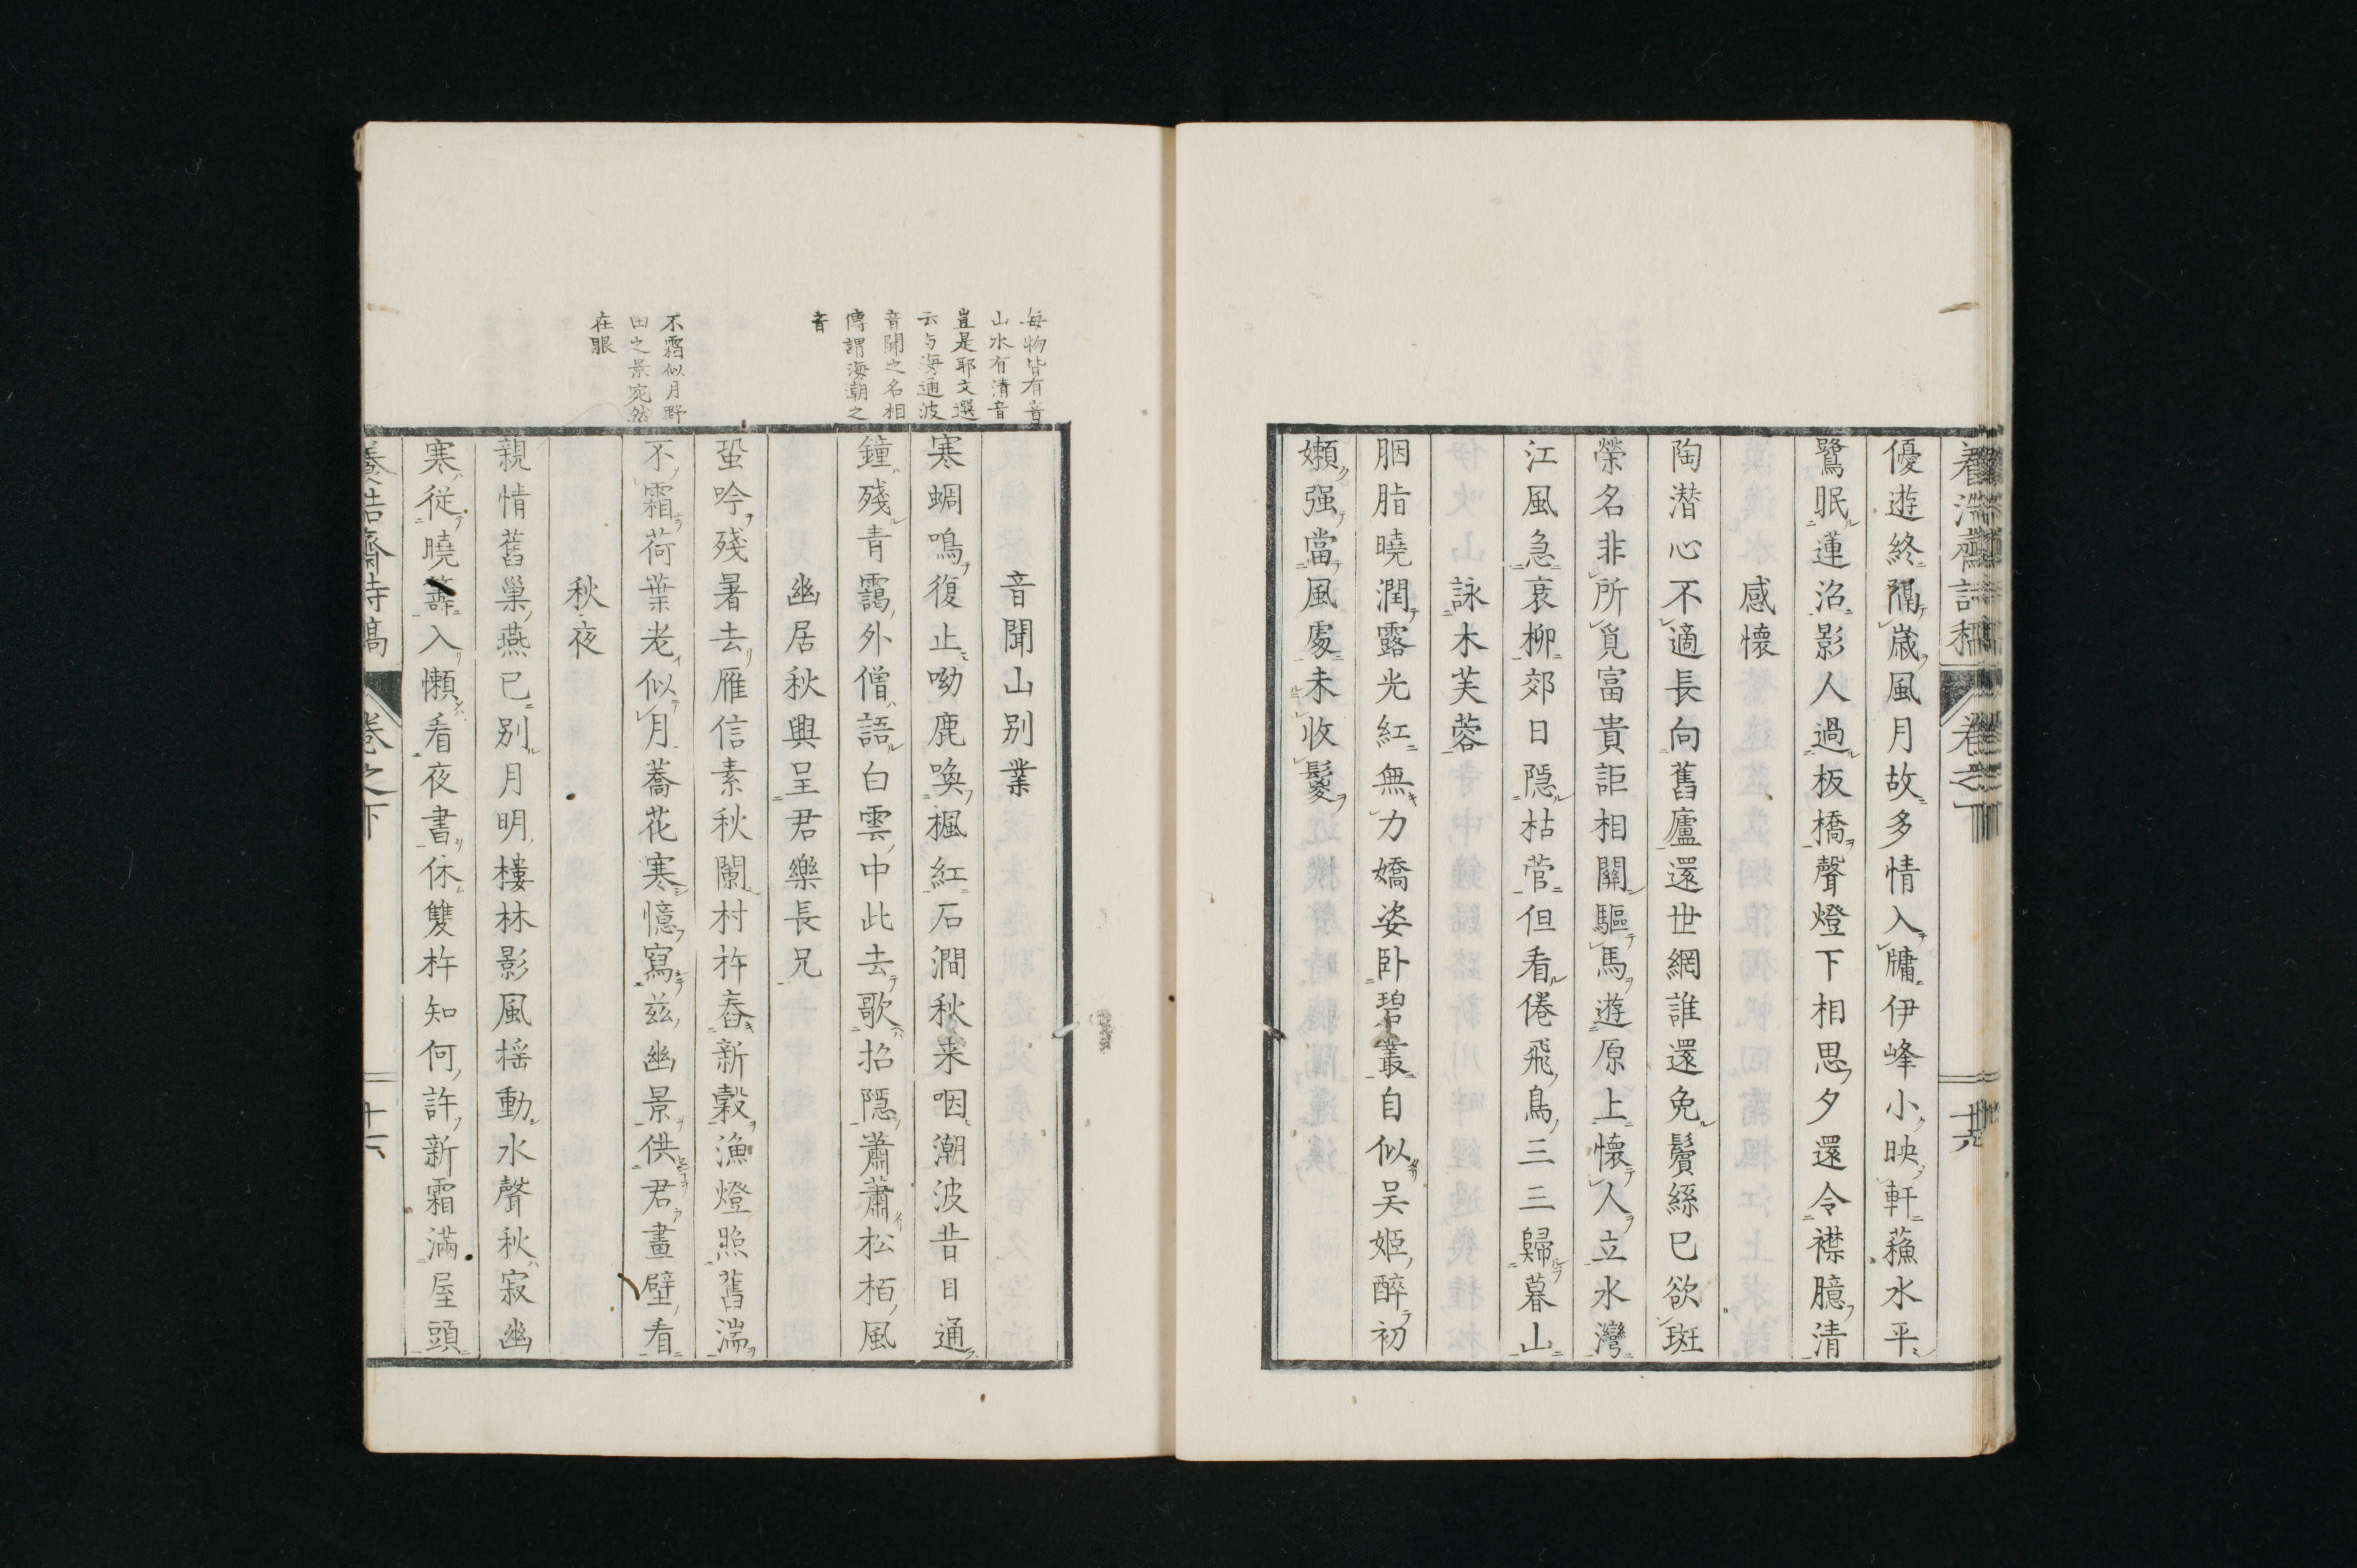 優遊終隔歳風月故多情入牗伊峰小映軒蘓水平
鷺眠蓮沼影人過板橋聲燈下相思夕還令襟臆清
感懷
陶潛心不適長向舊廬還世網誰還免鬢絲已欲斑
榮名非所覓富貴詎相關驅馬遊原上懷人立水灣
江風急衰柳郊日隠枯菅但看倦飛鳥三三歸暮山
詠木芙蓉
胭脂曉潤露光紅無力嬌姿卧碧叢自似吴姬醉初
嬾强當風處未收鬉
卷之下
每物皆有音
山水有清音
豈是耶文選
云与海通波
音聞之名相
傳謂海潮之
音
音聞山别業
寒蜩鳴復止呦鹿喚楓紅石澗秋来咽潮波昔日通
鐘殘青靄外僧語白雲中此去歌招隠蕭蕭松栢風
幽居秋興呈君樂長兄
蛩吟殘暑去雁信素秋闌村杵舂新穀漁燈照舊湍
不霜似月野
田之景宛然
在眼
不霜荷葉老似月蕎花寒憶寫兹幽景供君畫壁看
秋夜
親情舊巢燕已别月明樓林影風揺動水聲秋寂幽
寒從曉入懶看夜書休雙杵知何許新霜滿屋頭
卷之下
十六